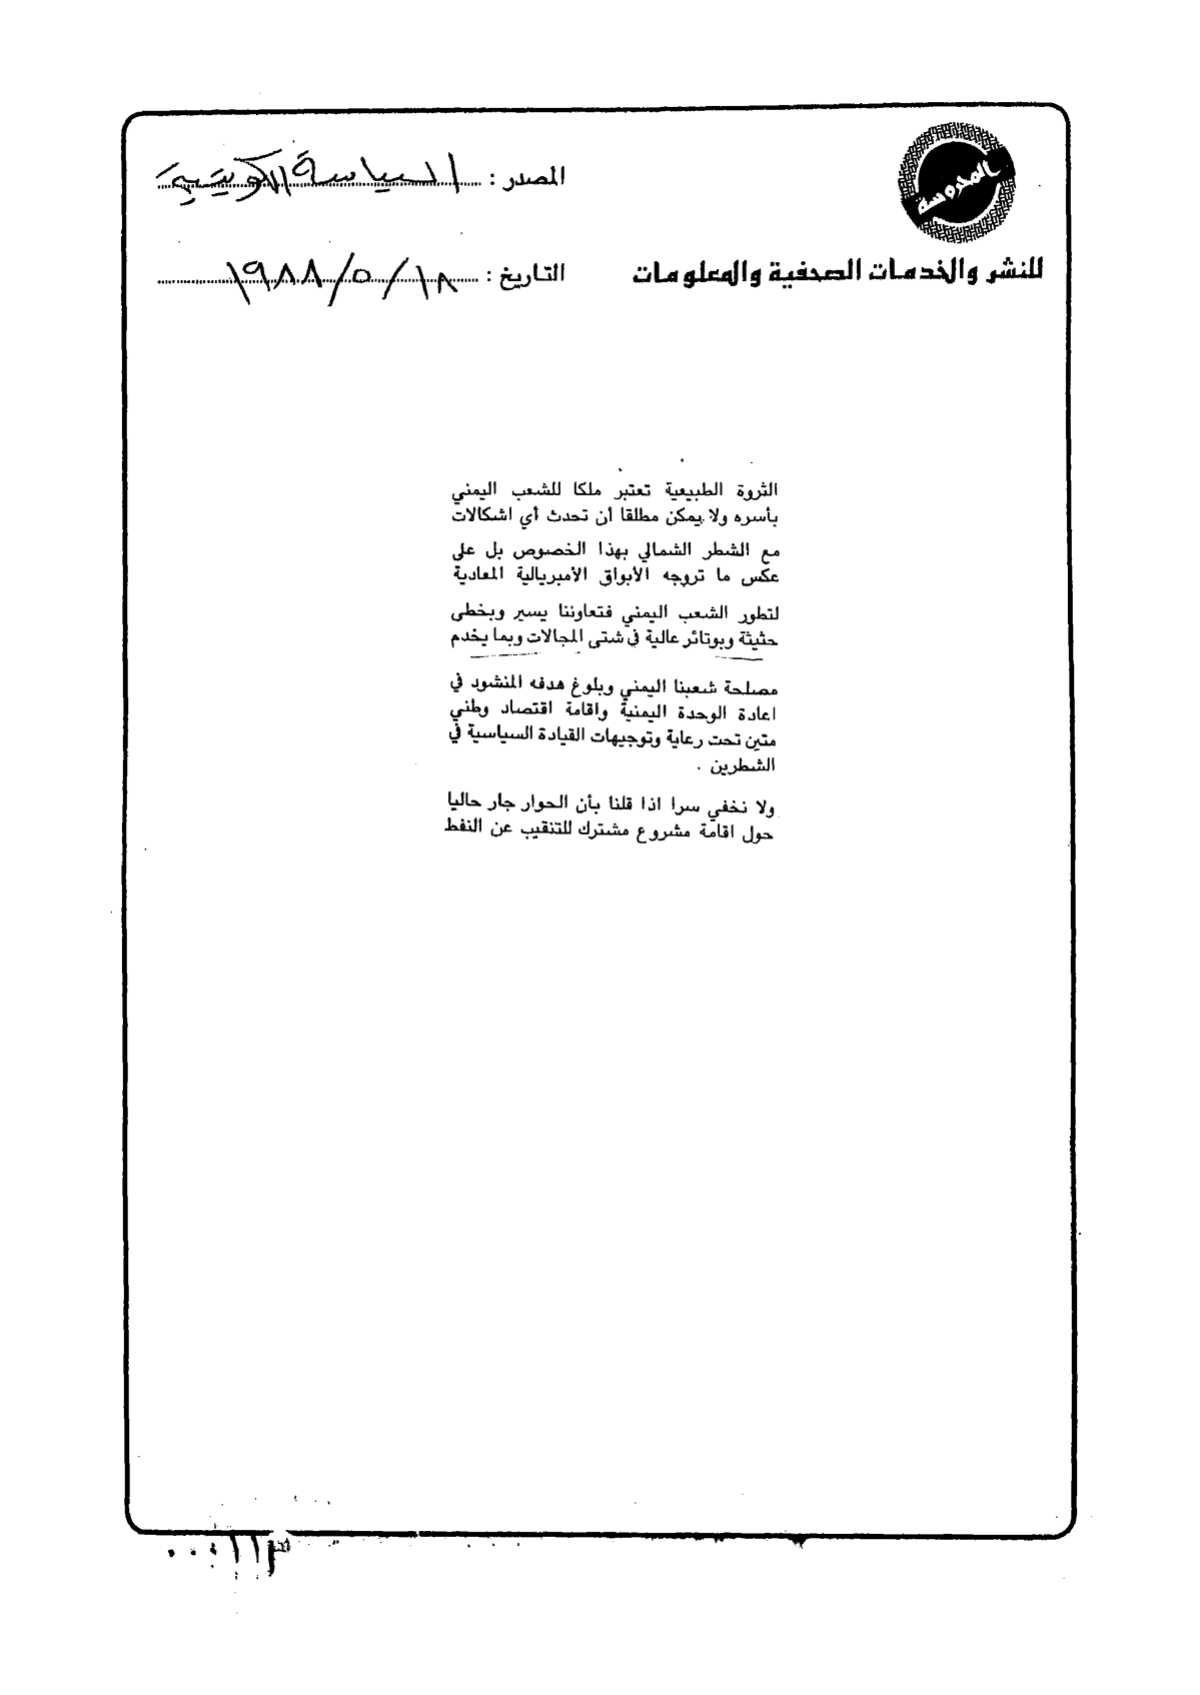 المدوسة
للنشر والخدمات الصحفية والمعلومات
المصدر : السياسة الكويتية
التاريخ : ١٩٨٨/٥/١٨
الثروة الطبيعية تعتبر ملكا للشعب اليمني
بأسره ولا يمكن مطلقا أن تحدث أي اشكالات
مع الشطر الشمالي بهذا الخصوص بل على
عكس ما تروجه الأبواق الأمبريالية المعادية
لتطور الشعب اليمني فتعاوننا يسير وبخطى
حثيثة وبوتائر عالية في شتى المجالات وبما يخدم
مصلحة شعبنا اليمني وبلوغ هدفه المنشود في
اعادة الوحدة اليمنية واقامة اقتصاد وطني
متين تحت رعاية وتوجيهات القيادة السياسية في
الشطرين .
ولا نخفي سرا اذا قلنا بأن الحوار جار حاليا
حول اقامة مشروع مشترك للتنقيب عن النفط